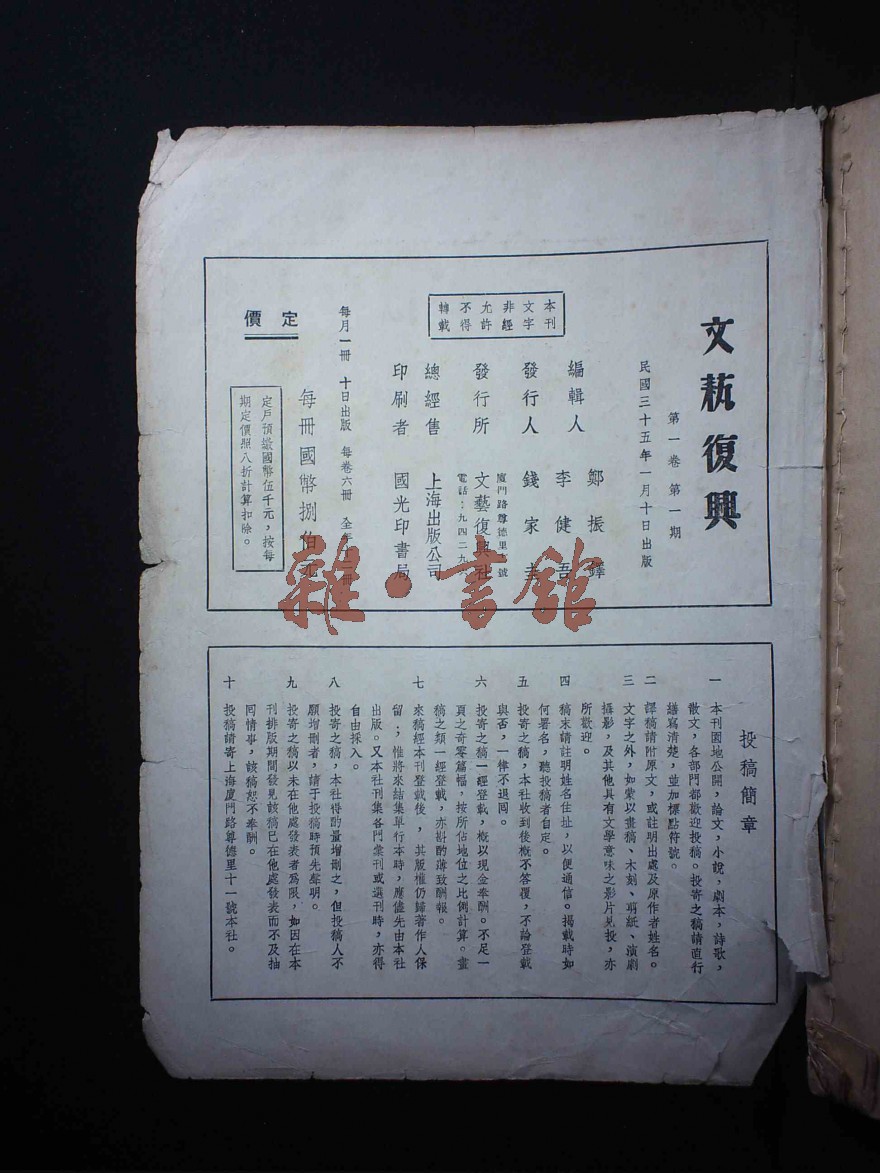 文藝復興
第一卷 第一期
民國三十五年一月十日出版
編輯人 鄭振鐸
李健吾
發行人 錢家圭
發行所 文藝復興社
廈門路尊德里 號
電話：九四二九
總經售 上海出版公司
印刷者 國光印書局
本刊
文字
非經
允許
不得
轉載
每月一冊 十日出版 每卷六冊 全年十二冊
定價
每冊國幣捌佰元
定戶預繳國幣伍千元，按每
期定價照八折計算扣除。
雜·書館
投稿簡章
一 本刊園地公開，論文，小說，劇本，詩歌，
散文，各部門都歡迎投稿。投寄之稿請直行
繕寫清楚，並加標點符號。
二 譯稿請附原文，或註明出處及原作者姓名。
三 文字之外，如蒙以畫稿、木刻、剪紙、演劇
攝影，及其他具有文學意味之影片見投，亦
所歡迎。
四 稿末請註明姓名住址，以便通信。揭載時如
何署名，聽投稿者自定。
五 投寄之稿，本社收到後概不答覆，不論登載
與否，一律不退囘。
六 投寄之稿一經登載，概以現金奉酬。不足一
頁之奇零篇幅，按所佔地位之比例計算。畫
稿之類一經登載，亦斟酌薄致酬報。
七 來稿經本刊登載後，其版權仍歸著作人保
留；惟將來結集單行本時，應儘先由本社
出版。又本社刊集各門彙刊或選刊時，亦得
自由採入。
八 投寄之稿，本社得酌量增刪之，但投稿人不
願增刪者，請于投稿時預先聲明。
九 投寄之稿以未在他處發表者爲限，如因在本
刊排版期間發見該稿已在他處發表而不及抽
囘情事，該稿恕不奉酬。
十 投稿請寄上海廈門路尊德里十一號本社。